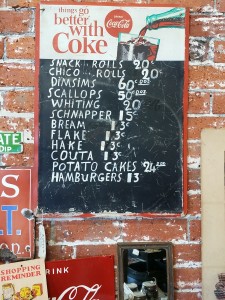 things go
better
with
Coke
DRINK
Coca-Cola
SNACK ROLLS 20c
CHICO ROLLS 20c
DIMSIMS 60c DOZ
SCALLOPS 50c DOZ
WHITING 20c
SCHNAPPER 15c
BREAM 13c
FLAKE 13c
HAKE 13c
COUTA 13c
POTATO CAKES 24c DOZ
HAMBURGERS 13
ATE
DIP
S
T.
SHOPPING
REMINDER
DRINK
Coca-Cola